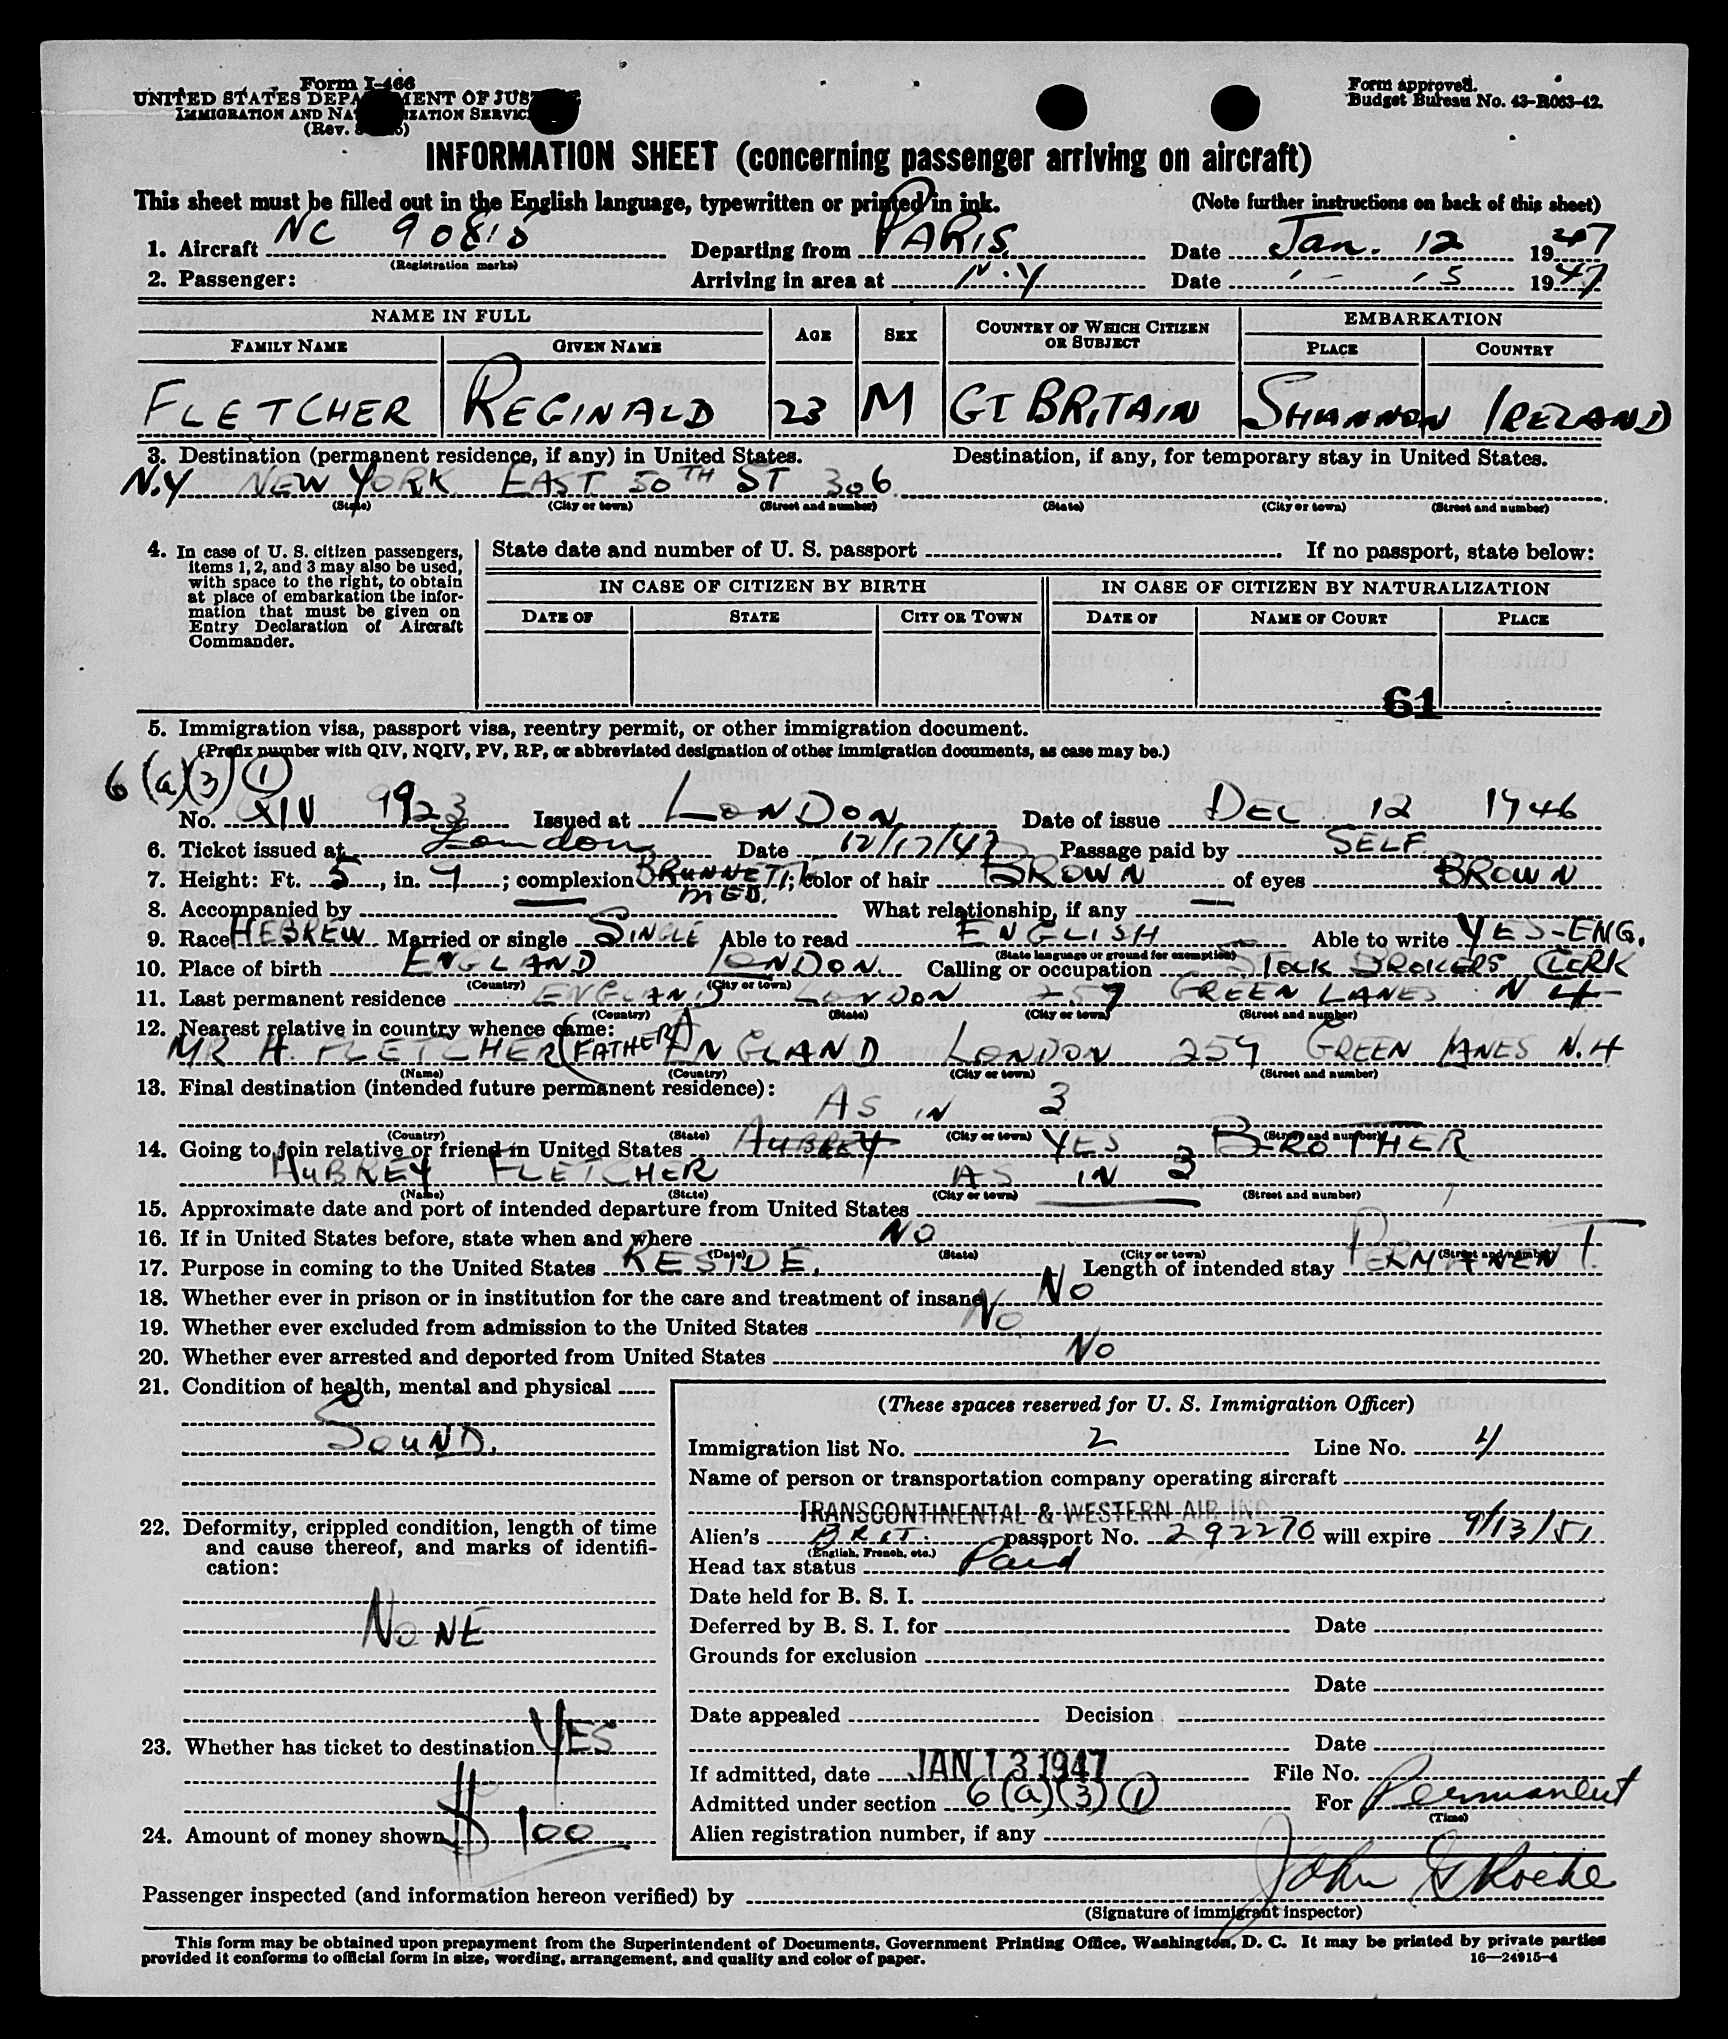 Form I-466
UNITED STATES DEPARTMENT OF JUSTICE
IMMIGRATION AND NATURALIZATION SERVICE
(Rev.
Form approved.
Budget Bureau No. 43-R063-42.
INFORMATION SHEET (concerning passenger arriving on aircraft)
This sheet must be filled out in the English language, typewritten or printed in ink. (Note further instructions on back of this sheet)
1. Aircraft NC Departing from PARIS Date Jan. 12 1947
(Registration marks)
2. Passenger: Arriving in area at N.Y Date 1947
NAME IN FULL AGE SEX COUNTRY OF WHICH CITIZEN OR SUBJECT EMBARKATION
FAMILY NAME GIVEN NAME PLACE COUNTRY
FLETCHER REGINALD 23 M GT BRITAIN SHANNON IRELAND
3. Destination (permanent residence, if any) in United States. Destination, if any, for temporary stay in United States.
N.Y NEW YORK EAST 50TH ST 306
(State) (City or town) (Street and number) (State) (City or town) (Street and number)
4. In case of U. S. citizen passengers, items 1, 2, and 3 may also be used, with space to the right, to obtain at place of embarkation the information that must be given on Entry Declaration of Aircraft Commander.
State date and number of U. S. passport If no passport, state below:
IN CASE OF CITIZEN BY BIRTH IN CASE OF CITIZEN BY NATURALIZATION
DATE OF STATE CITY OR TOWN DATE OF NAME OF COURT PLACE
61
5. Immigration visa, passport visa, reentry permit, or other immigration document.
(Prefix number with QIV, NQIV, PV, RP, or abbreviated designation of other immigration documents, as case may be.)
6 (a)(3) (1)
No. QIV 9923 Issued at LONDON Date of issue DEC 12 1946
6. Ticket issued at London Date 12/17/47 Passage paid by SELF
7. Height: Ft. 5, in. 9; complexion BRUNNETTE; color of hair BROWN of eyes BROWN
MED.
8. Accompanied by — What relationship, if any —
9. Race HEBREW Married or single SINGLE Able to read ENGLISH Able to write YES-ENG.
(State language or ground for exemption)
10. Place of birth ENGLAND LONDON Calling or occupation STOCK BROKERS CLERK
(Country) (City or town)
11. Last permanent residence ENGLAND LONDON 257 GREEN LANES N 4
(Country) (State) (City or town) (Street and number)
12. Nearest relative in country whence came:
MR H. FLETCHER (FATHER) ENGLAND LONDON 259 GREEN LANES N.4
(Name) (Country) (City or town) (Street and number)
13. Final destination (intended future permanent residence):
AS IN 3
(Country) (State) (City or town) (Street and number)
14. Going to join relative or friend in United States AUBREY YES BROTHER
AUBREY FLETCHER AS IN 3
(Name) (State) (City or town) (Street and number)
15. Approximate date and port of intended departure from United States
16. If in United States before, state when and where NO
(Date) (State) (City or town) (Street and number)
17. Purpose in coming to the United States RESIDE. Length of intended stay PERMANENT.
18. Whether ever in prison or in institution for the care and treatment of insane NO
19. Whether ever excluded from admission to the United States NO
20. Whether ever arrested and deported from United States NO
21. Condition of health, mental and physical
SOUND.
22. Deformity, crippled condition, length of time and cause thereof, and marks of identification:
NONE
23. Whether has ticket to destination YES
24. Amount of money shown $100
(These spaces reserved for U. S. Immigration Officer)
Immigration list No. 2 Line No. 4
Name of person or transportation company operating aircraft
TRANSCONTINENTAL & WESTERN AIR INC.
Alien's BRIT. passport No. 292270 will expire 9/13/51
(English, French, etc.)
Head tax status Paid
Date held for B. S. I.
Deferred by B. S. I. for Date
Grounds for exclusion
Date
Date appealed Decision
Date
If admitted, date JAN 13 1947 File No.
Admitted under section 6(a)(3)(1) For Permanent
(Time)
Alien registration number, if any
Passenger inspected (and information hereon verified) by John G
(Signature of immigrant inspector)
This form may be obtained upon prepayment from the Superintendent of Documents, Government Printing Office, Washington, D. C. It may be printed by private parties
provided it conforms to official form in size, wording, arrangement, and quality and color of paper. 16—24915-4